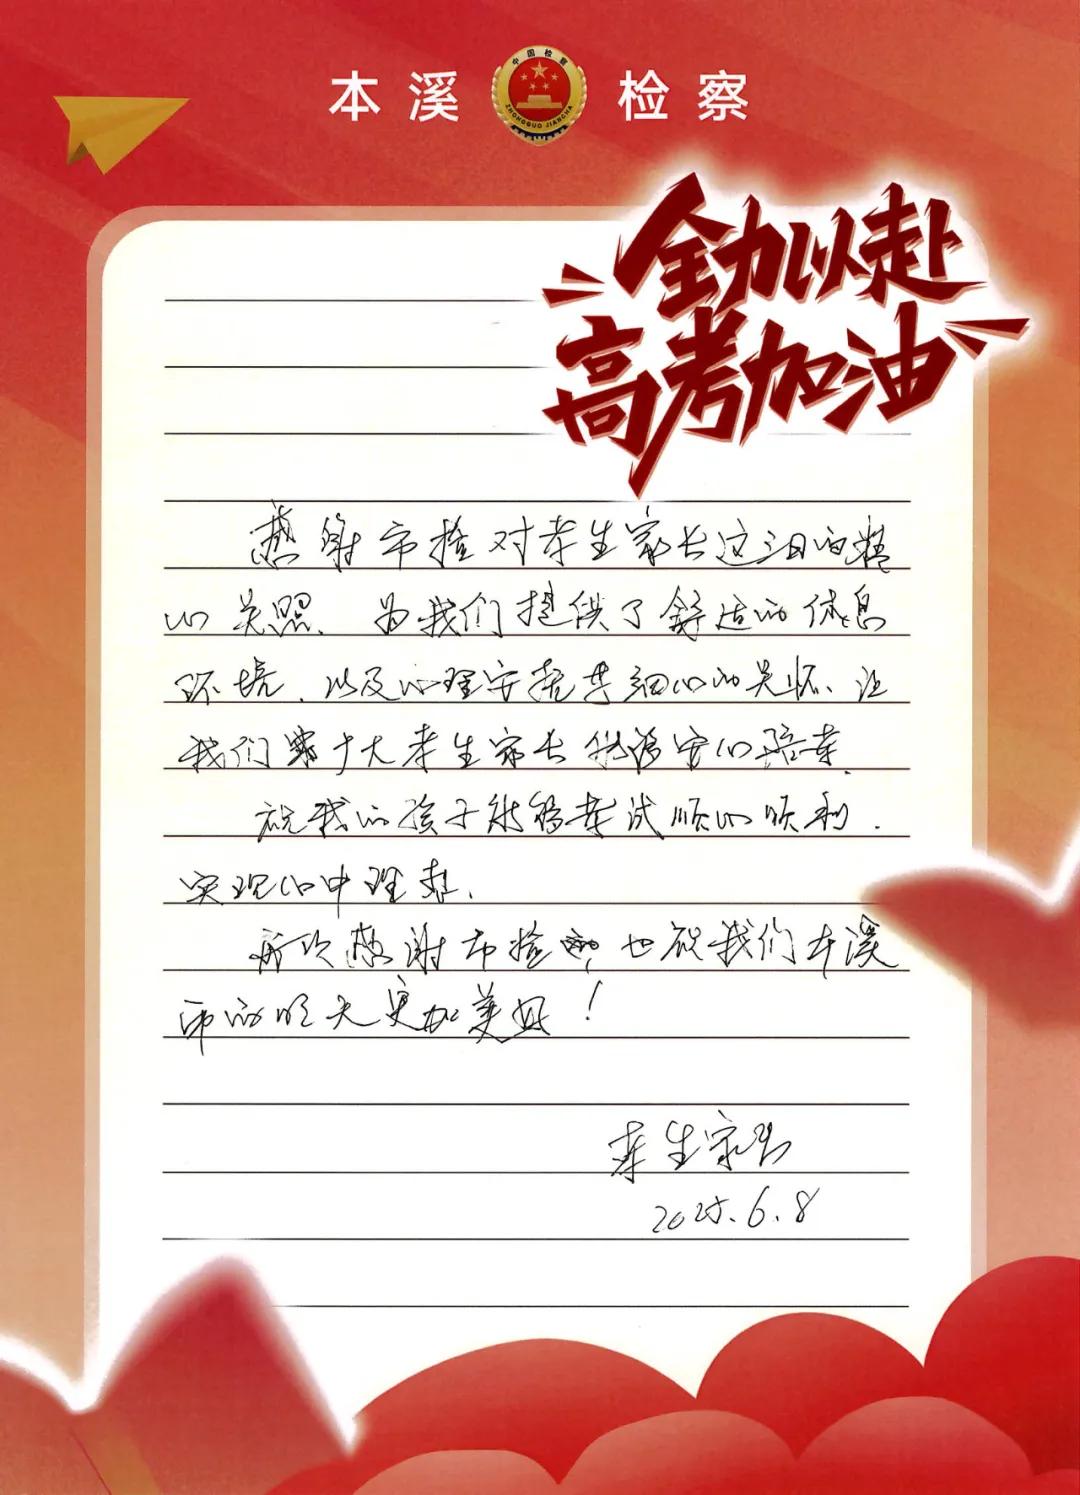 本溪 检察
中国检察
ZHONGGUO JIANCHA
全力以赴
高考加油
感谢市检对考生家长这三日的精
心关照、为我们提供了舒适的休息
环境、以及心理安抚等细心的关怀、让
我们广大考生家长能够安心陪考.
祝我的孩子能够考试顺心顺利.
实现心中理想.
再次感谢市检 也祝我们本溪
市的明天更加美好!
考生家长
2025.6.8